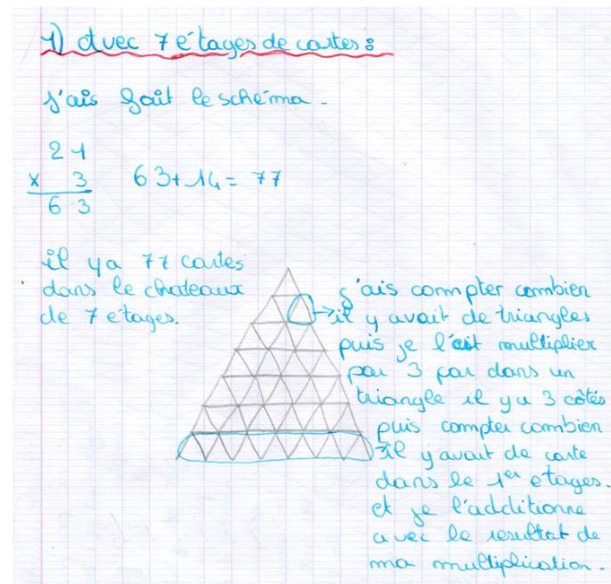 1) Avec 7 étages de cartes :
J'ais fait le schéma.
21
x 3
63
63+14= 77
il ya 77 cartes
dans le chateaux
de 7 étages.
j'ais compter combien
il y avait de triangles
puis je l'ait multiplier
par 3 par dans un
triangle il ya 3 côtés
puis compter combien
il y avait de carte
dans le 1er etages.
et je l'additionne
avec le resultat de
ma multiplication.